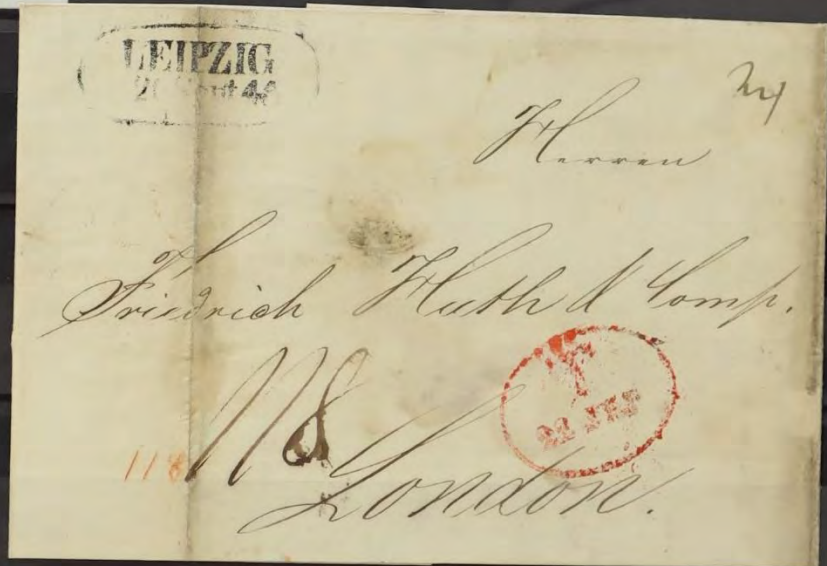 LEIPZIG
24
Herren
Friedrich Huth & Comp.
118
118
London.
T